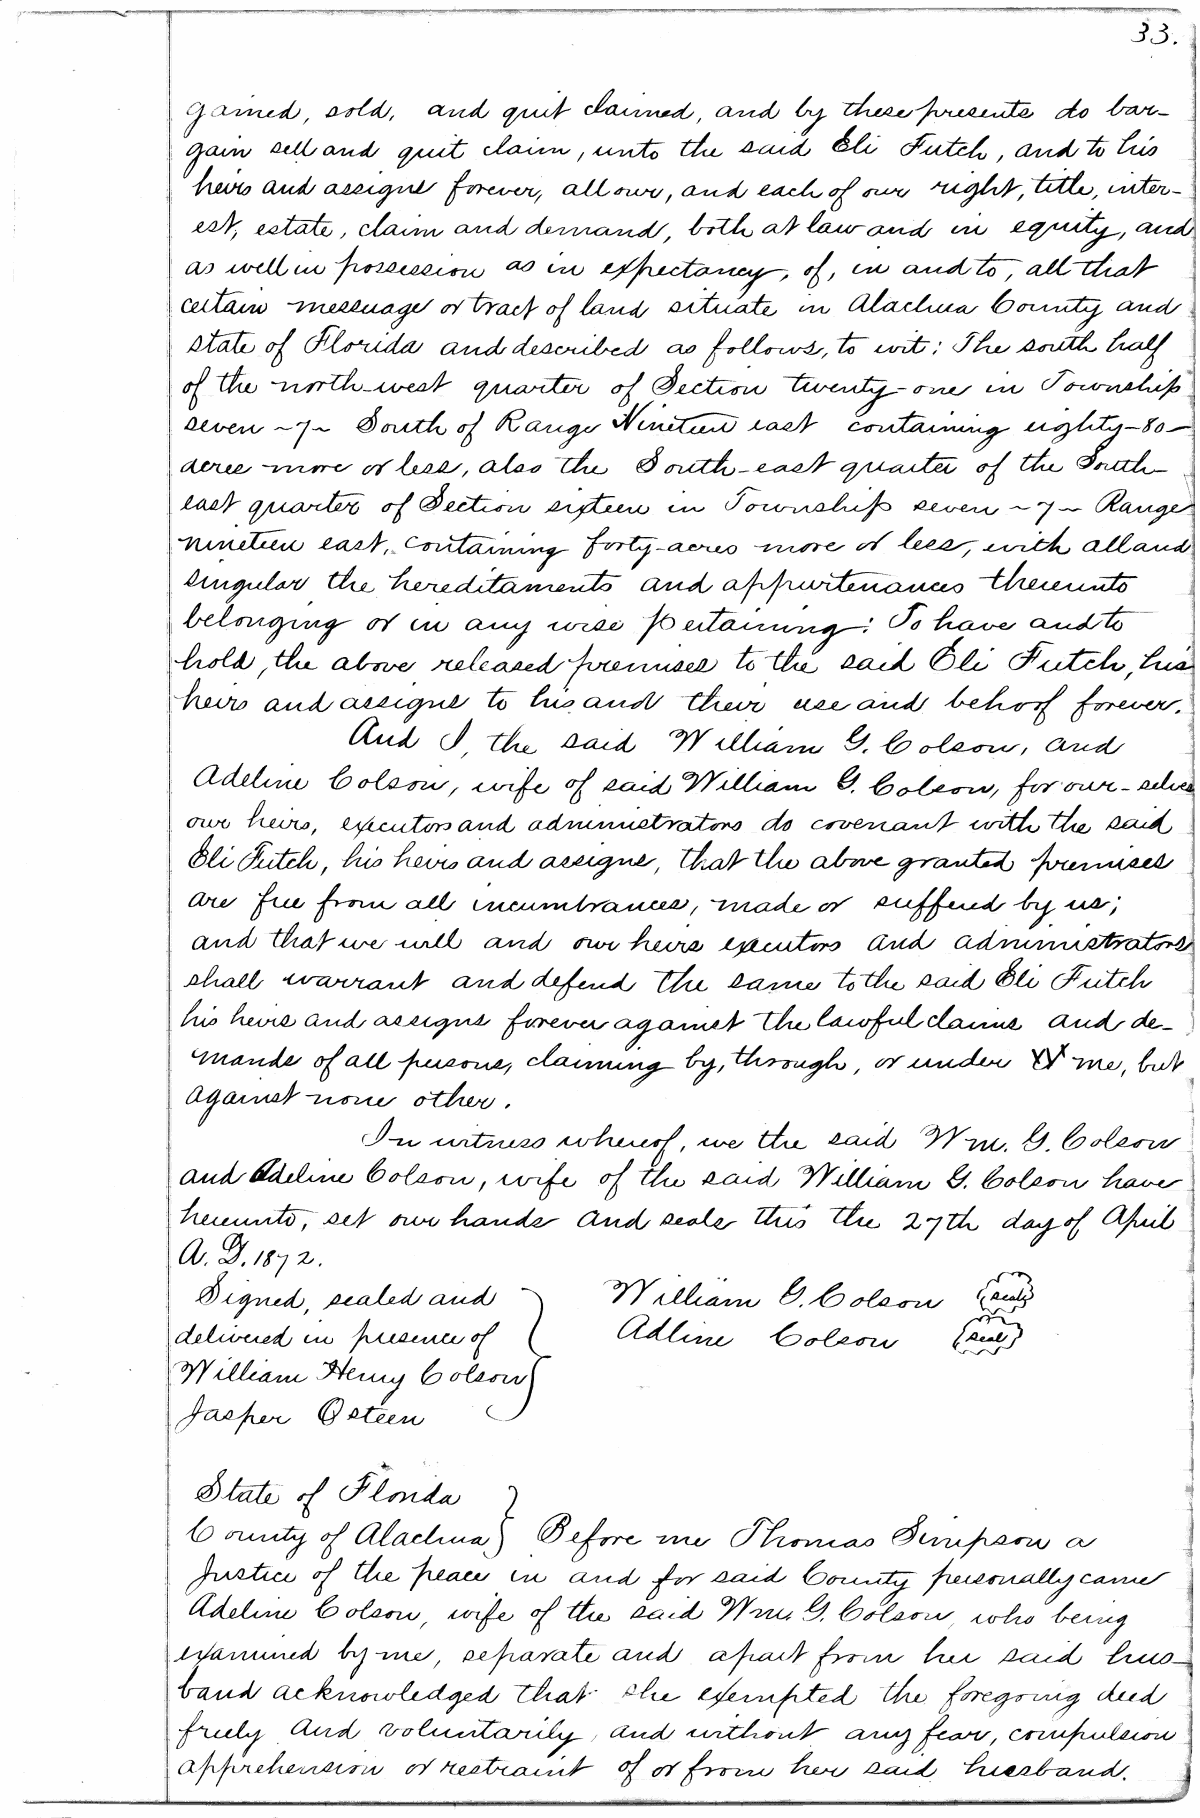 33.
gained, sold, and quit claimed, and by these presents do bar-
gain sell and quit claim, unto the said Eli Futch, and to his
heirs and assigns forever, all our, and each of our right, title, inter-
est, estate, claim and demand, both at law and in equity, and
as well in possession as in expectancy, of, in and to, all that
certain messuage or tract of land situate in Alachua County and
state of Florida and described as follows, to wit: The south half
of the north-west quarter of Section twenty-one in Township
seven ~7~ South of Range Nineteen east containing eighty-80-
acres more or less, also the South-east quarter of the South-
east quarter of Section sixteen in Township seven ~7~ Range
nineteen east, containing forty-acres more or less, with all and
singular the hereditaments and appurtenances thereunto
belonging or in any wise pertaining: To have and to
hold, the above released premises to the said Eli Futch, his
heirs and assigns to his and their use and behoof forever.
And I, the said William G. Colson, and
Adeline Colson, wife of said William G. Colson, for our-selves
our heirs, executors and administrators do covenant with the said
Eli Futch, his heirs and assigns, that the above granted premises
are free from all incumbrances, made or suffered by us;
and that we will and our heirs executors and administrators
shall warrant and defend the same to the said Eli Futch
his heirs and assigns forever against the lawful claims and de-
mands of all persons, claiming by, through, or under me, but
against none other.
In witness whereof, we the said Wm. G. Colson
and Adeline Colson, wife of the said William G. Colson have
hereunto, set our hands and seals this the 27th day of April
A. D. 1872.
Signed, sealed and William G. Colson (seal)
delivered in presence of Adline Colson (seal)
William Henry Colson
Jasper Osteen
State of Florida
County of Alachua} Before me Thomas Simpson a
Justice of the peace in and for said County personally came
Adeline Colson, wife of the said Wm. G. Colson, who being
examined by me, separate and apart from her said hus-
band acknowledged that she exempted the foregoing deed
freely and voluntarily, and without any fear, compulsion
apprehension or restraint of or from her said husband.